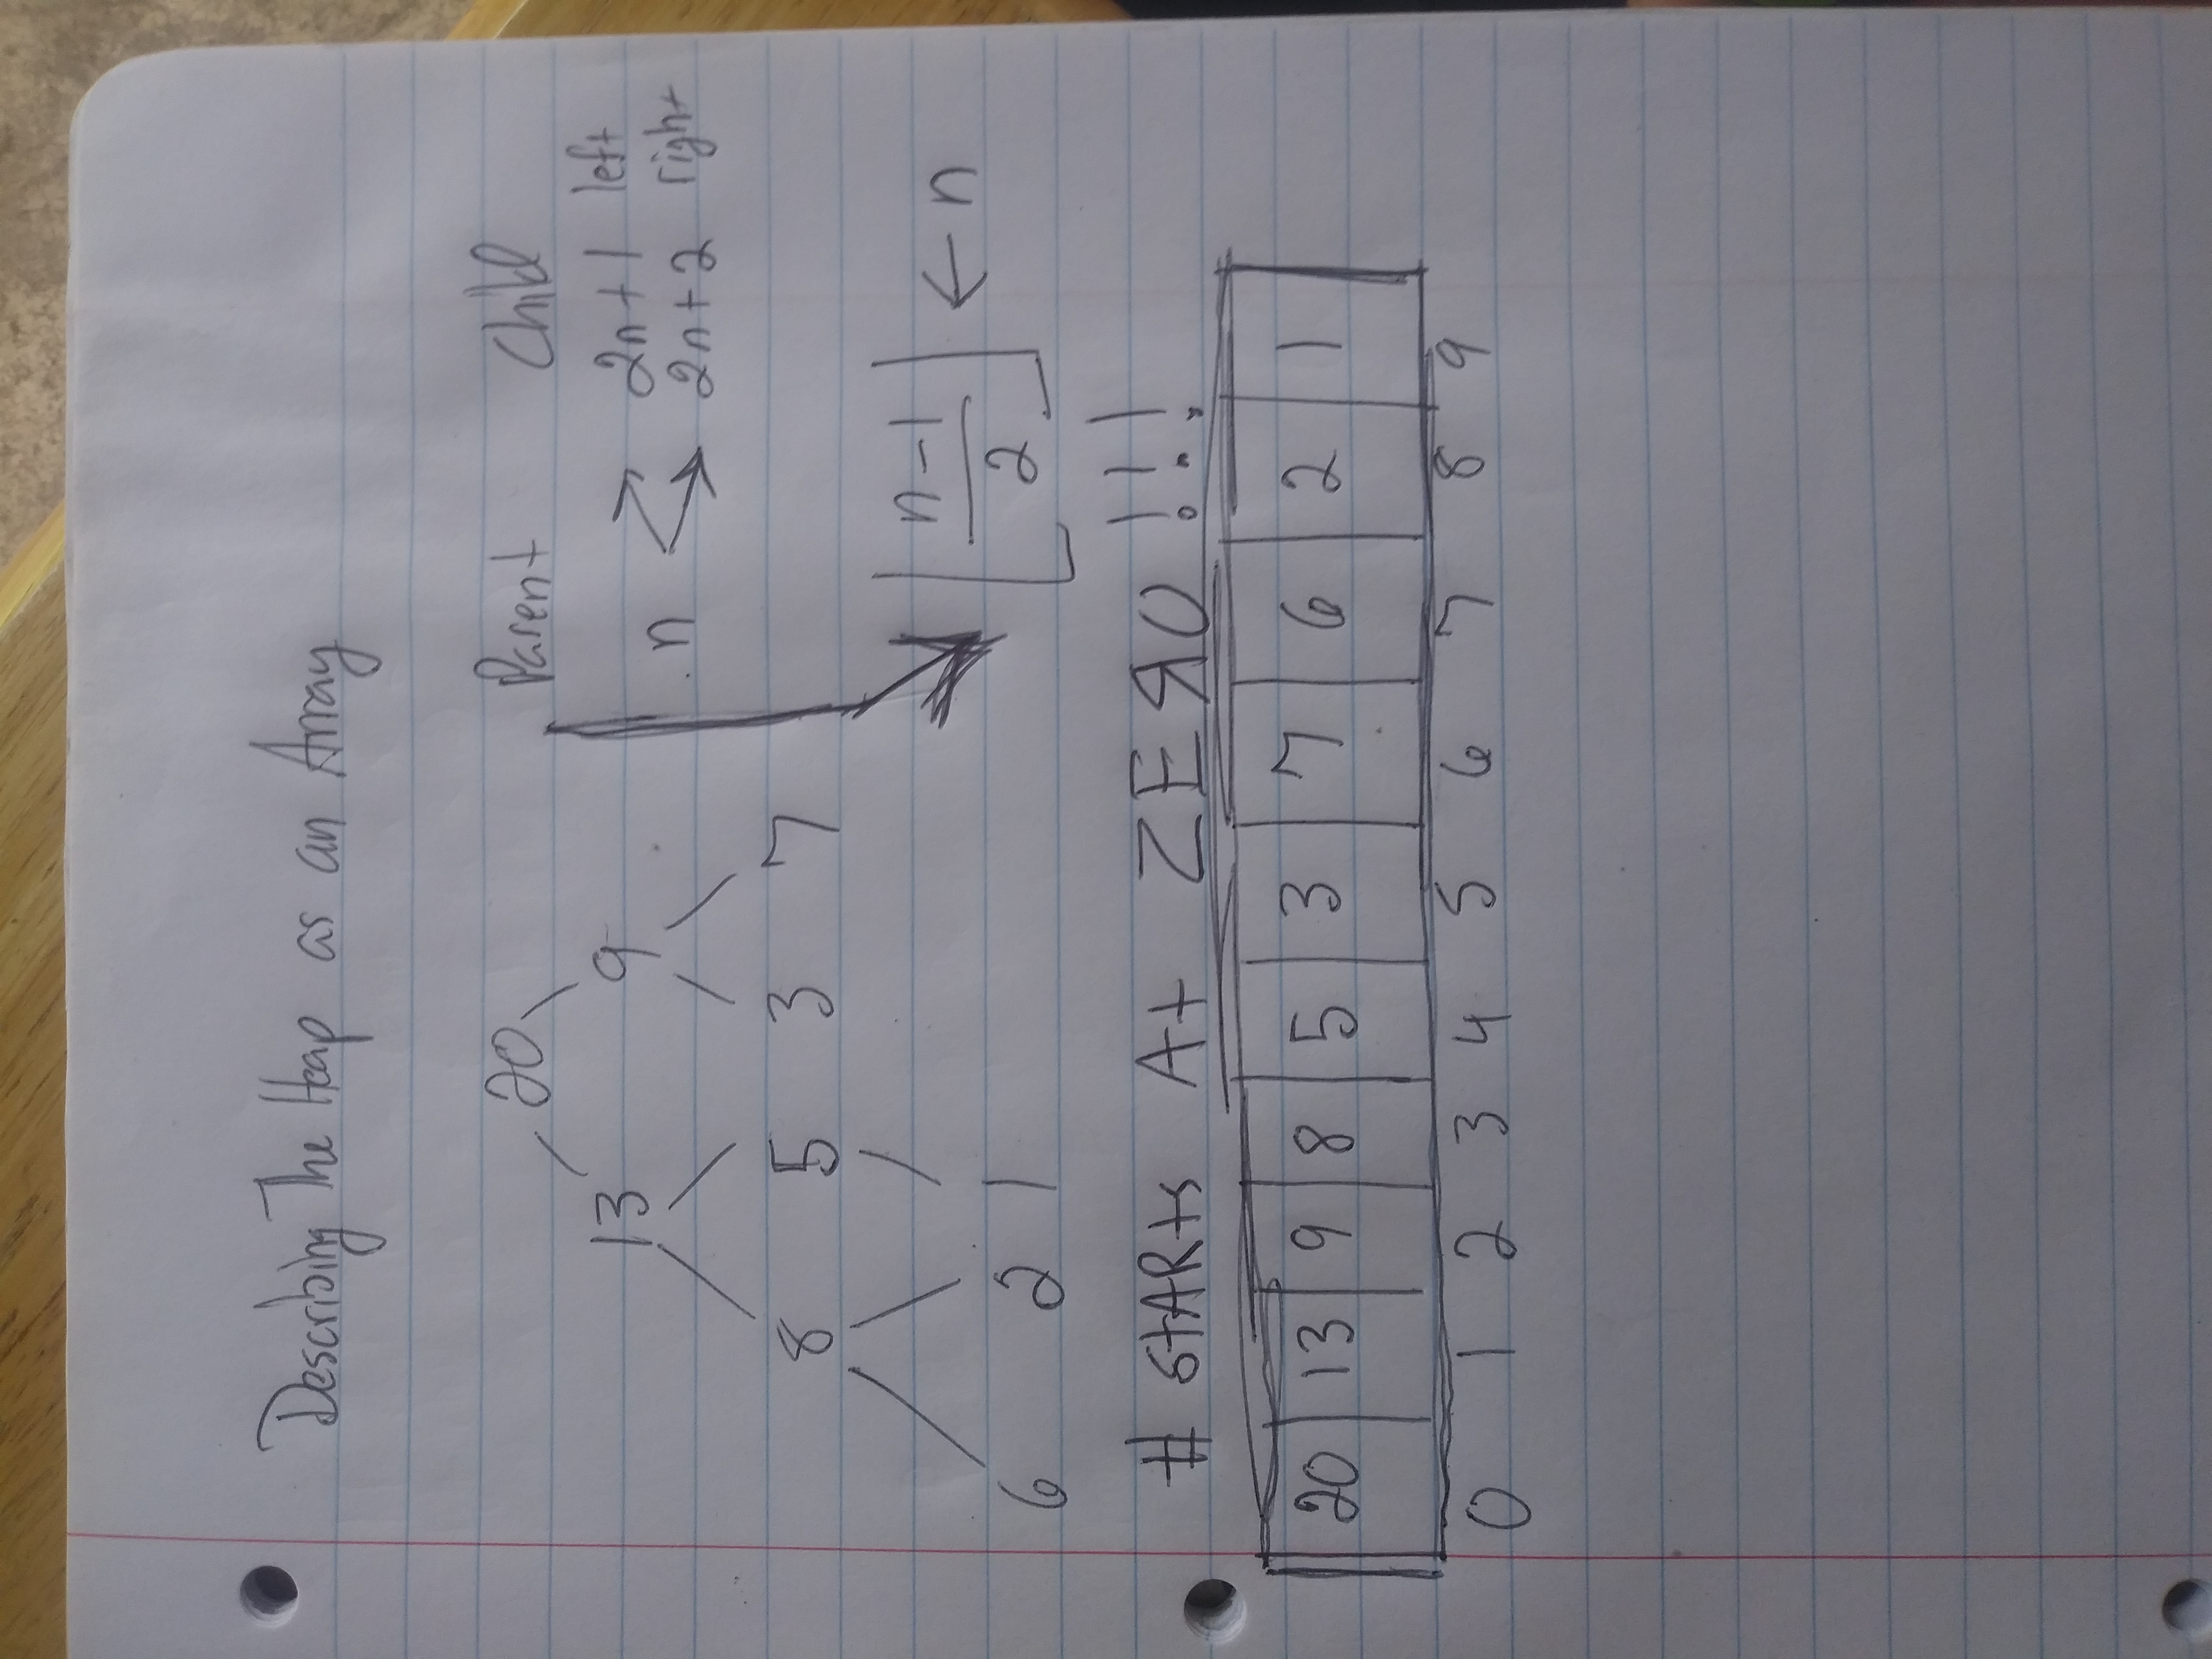 Describing The Heap as an Array
20
13 9
8 5 3 7
6 2 1
Parent Child
n 2n+1 left
2n+2 right
⌊(n-1)/2⌋ ← n
# STARts At ZEЯO !!!
20 13 9 8 5 3 7 6 2 1
0 1 2 3 4 5 6 7 8 9